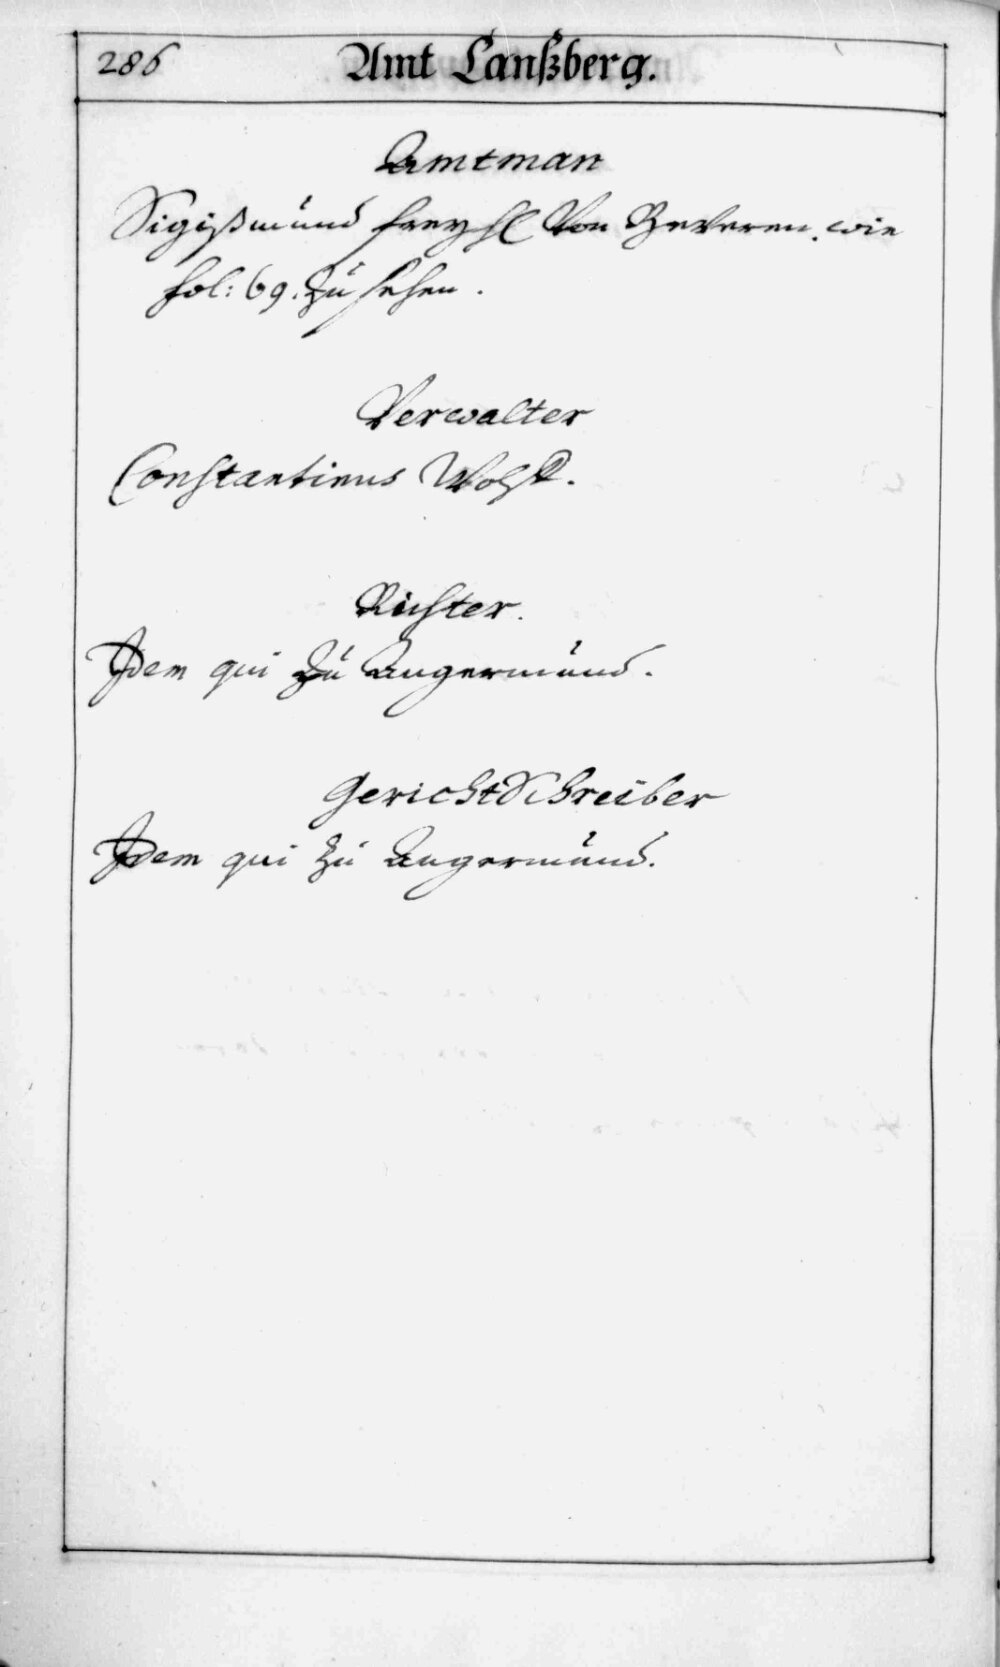 286
Amt Lanßberg.
Amtman
Sigißmund freyh Von Beveren. wie
fol: 69. zu sehen.
Verwalter
Constantinus
Richter.
Idem qui zu Angermund.
GerichtSchreiber
Idem qui zu Angermund.